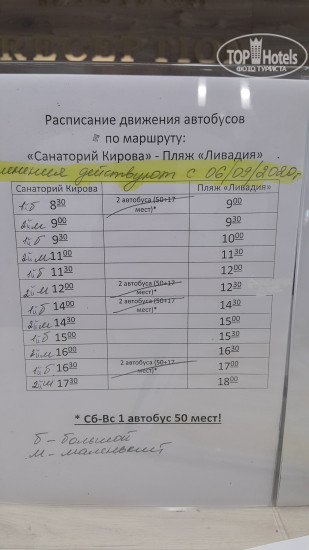 RECEPTION
TOP Hotels
ФОТО ТУРИСТА
Расписание движения автобусов
по маршруту:
«Санаторий Кирова» - Пляж «Ливадия»
действуют с 06/09/2020г
Санаторий Кирова Пляж «Ливадия»
1й б 8 30 2 автобуса (50+17 мест)* 9 00
2й м 9 00 9 30
1й б 9 30 10 00
2й м 11 00 11 30
1й б 11 30 12 00
2й м 12 00 2 автобуса (50+17 мест)* 12 30
1й б 14 00 2 автобуса (50+17 мест)* 14 30
2й м 14 30 15 00
1й б 15 00 15 30
2й м 16 00 16 30
1й б 16 30 2 автобуса (50+17 мест)* 17 00
2й м 17 30 18 00
* Сб-Вс 1 автобус 50 мест!
б - большой
м - маленький